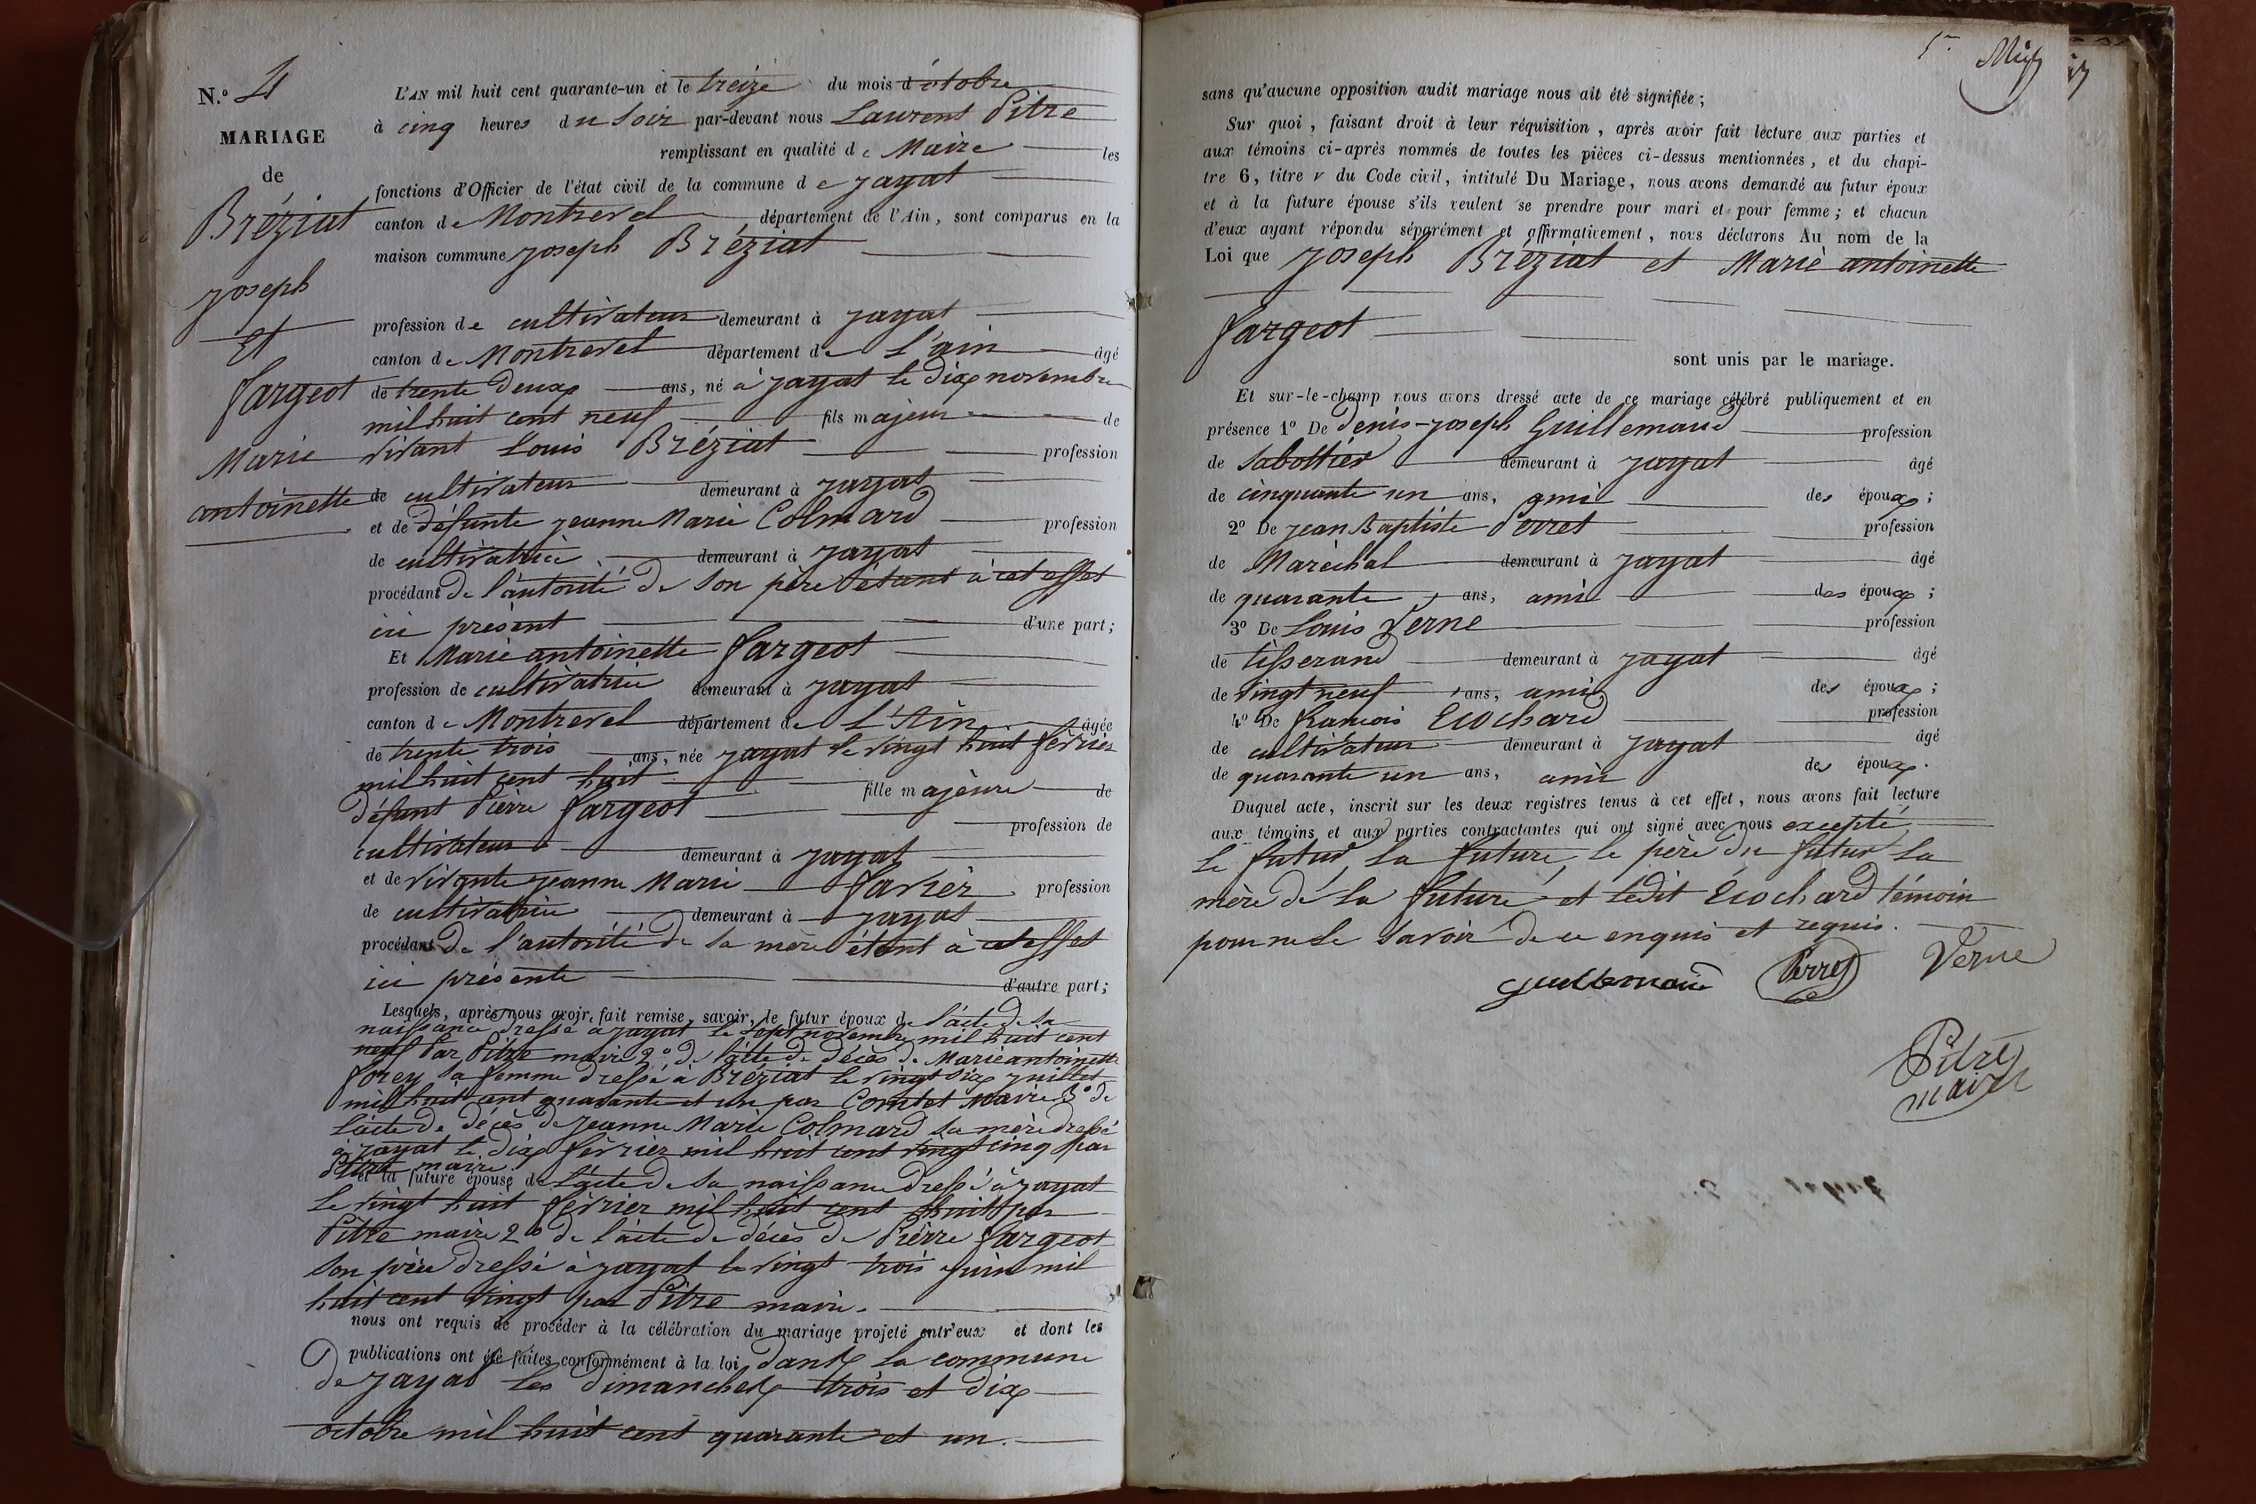 N.o 4
MARIAGE
de
Bréziat
joseph
Et
fargeot
Marie
antoinette
L'AN mil huit cent quarante-un et le treize du mois d'octobre
à cinq heures du soir par-devant nous Laurent Pitre
remplissant en qualité de Maire les
fonctions d'Officier de l'état civil de la commune de jayat
canton de Montrevel département de l'Ain, sont comparus en la
maison commune joseph Bréziat
profession de cultivateur demeurant à jayat
canton de Montrevel département de L'ain âgé
de trente deux ans, né à jayat le dix novembre
mil huit cent neuf fils majeur de
vivant Louis Bréziat profession
de cultivateur demeurant à jayat
et de défunte jeanne Marie Colmard profession
de cultivatrice demeurant à jayat
procédant de l'autorité de son père étant à cet effet
ici présent d'une part;
Et Marie antoinette fargeot
profession de cultivatrice demeurant à jayat
canton de Montrevel département de L'Ain âgée
de trente trois ans, née jayat le vingt huit février
mil huit cent huit fille majeure de
défunt Pierre fargeot profession de
cultivateur demeurant à jayat
et de vivante jeanne Marie favier profession
de cultivatrice demeurant à jayat
procédant de l'autorité de sa mère étant à cet effet
ici présente d'autre part;
Lesquels, après nous avoir fait remise, savoir, le futur époux de l'acte de sa
naissance dressé à jayat le sept novembre mil huit cent
neuf Par Pitre maire 2o de l'acte de décès de Marie antoinette
forey sa femme dressé à Bréziat le vingt six juillet
mil huit cent quarante et un par Comtet Maire 3o de
l'acte de décès de Jeanne Marie Colmard sa mère dressé
à jayat le dix février mil huit cent vingt cinq par
Pitre maire
et la future épouse de l'acte de sa naissance dressé à jayat
le vingt huit février mil huit cent huit par
Pitre maire 2o de l'acte de décès de Pierre fargeot
son père dressé à jayat le vingt trois juin mil
huit cent vingt par Pitre maire.
nous ont requis de procéder à la célébration du mariage projeté entr'eux et dont les
publications ont été faites conformément à la loi dans la commune
de jayat les dimanches trois et dix
octobre mil huit cent quarante et un.
sans qu'aucune opposition audit mariage nous ait été signifiée;
Sur quoi, faisant droit à leur réquisition, après avoir fait lecture aux parties et
aux témoins ci-après nommés de toutes les pièces ci-dessus mentionnées, et du chapi-
tre 6, titre V du Code civil, intitulé Du Mariage, nous avons demandé au futur époux
et à la future épouse s'ils veulent se prendre pour mari et pour femme; et chacun
d'eux ayant répondu séparément et affirmativement, nous déclarons Au nom de la
Loi que joseph Bréziat et Marie antoinette
fargeot
sont unis par le mariage.
Et sur-le-champ nous avons dressé acte de ce mariage célébré publiquement et en
présence 1o De denis-joseph Guillemaud profession
de Sabottier demeurant à jayat âgé
de cinquante un ans, ami des époux;
2o De jean Baptiste Perret profession
de Maréchal demeurant à jayat âgé
de quarante ans, ami des époux;
3o De Louis Verne profession
de tisserand demeurant à jayat âgé
de vingt neuf ans, ami des époux;
4o De francois Ecochard profession
de cultivateur demeurant à jayat âgé
de quarante un ans, ami des époux.
Duquel acte, inscrit sur les deux registres tenus à cet effet, nous avons fait lecture
aux témoins et aux parties contractantes qui ont signé avec nous excepté
le futur, la future, le père du futur la
mère de la future et ledit Ecochard témoin
pour ne le savoir de ce enquis et requis.
Guillemaud Perret Verne
Pitre
maire